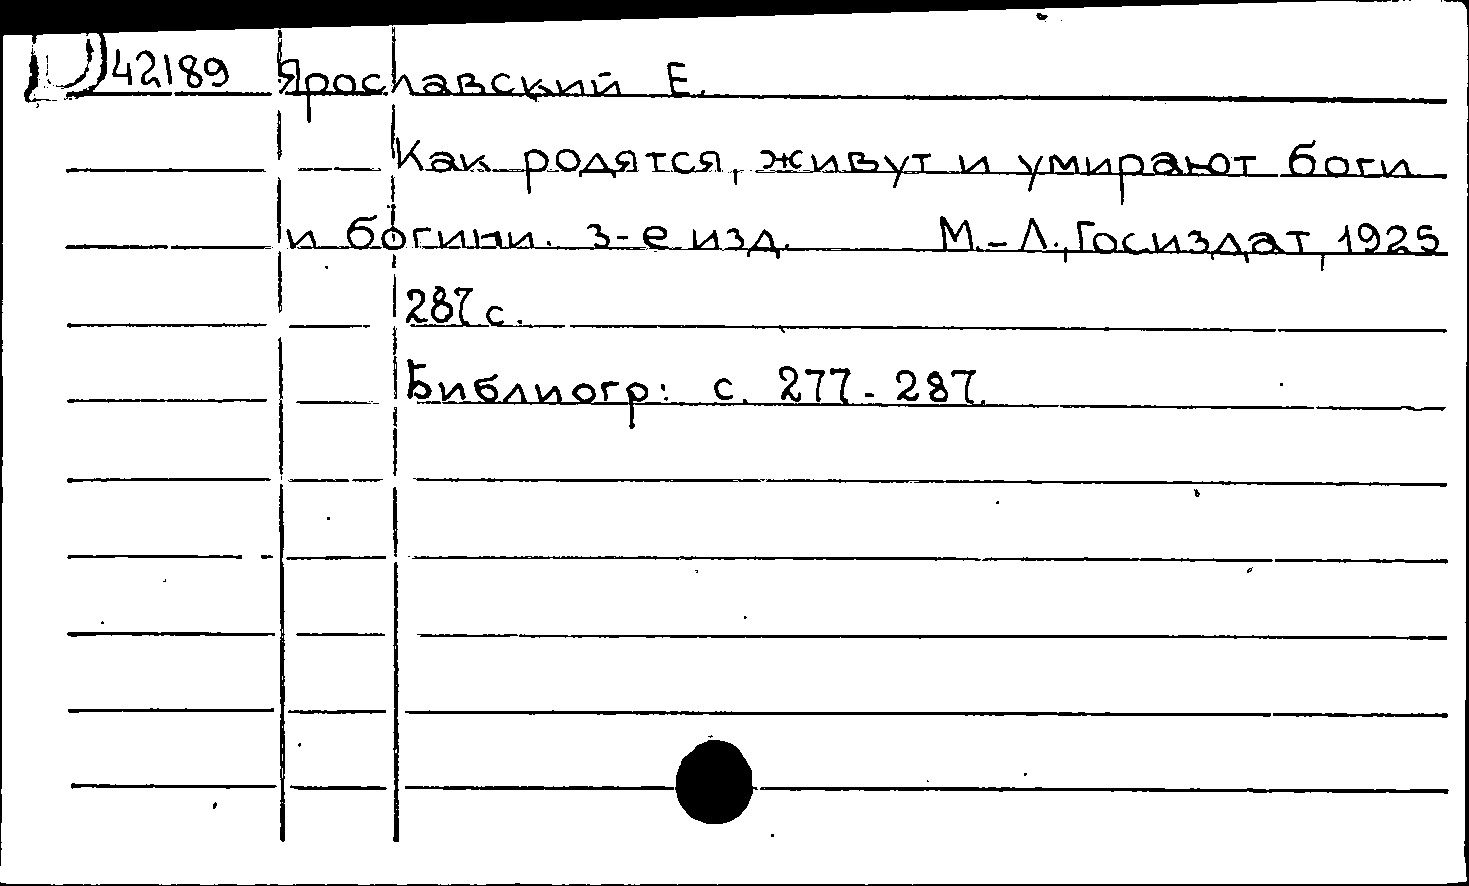 D 42189 Ярославский Е.
Как родятся, живут и умирают боги
и богини. 3-е изд. М.-Л., Госиздат, 1925
287 с.
Библиогр: с. 277-287.